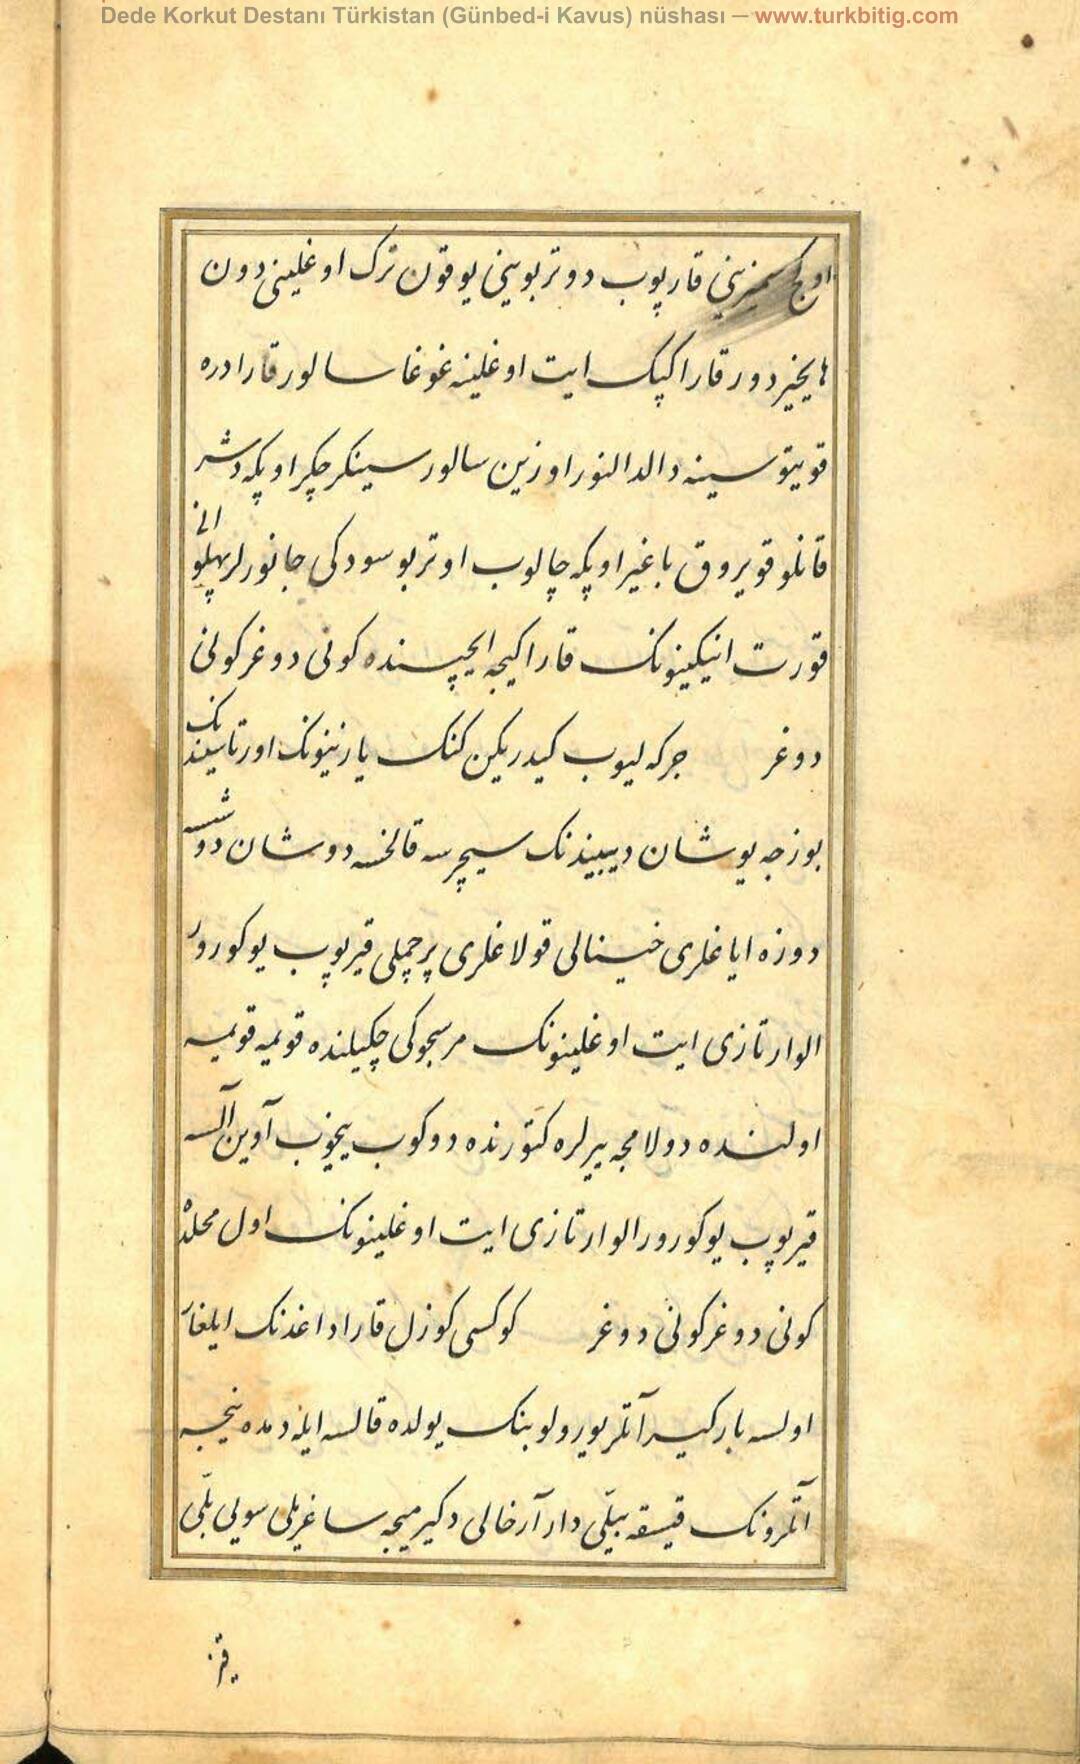 Dede Korkut Destanı Türkistan (Günbed-i Kavus) nüshası – www.turkbitig.com
اوکج سمیزینی قارپوب دوتر بوینی یوقون ترک اوغلینی دون
هایخیر دور قارا کپک ایت اوغلینه غوغا سالور قارا دره
قویتو سینه دالدالنور اوزین سالور سینکر چکر اوپکه دشر
قانلو قویروق باغیر اوپکه چالوب اوتر بو سودکی جانورلر پهلوانی
قورت انیکینونک قارا کیجه ایچیسنده کونی دوغر کونی
دوغر جرکه لیوب کیدریکن کنک یازینونک اورتاسیندنک
بوزجه یوشان دیبیندنک سیچرسه قالخسه دوشان دوشسه
دوزه ایاغلری خینالی قولاغلری پرچملی قیرپوب یوکورور
الوار تازی ایت اوغلینونک مرسجوکی چکیلنده قویمه قویمه
اولنده دولامجه ییرلره کتورنده دوکوب ییخوب آوین آلسه
قیرپوب یوکورور الوار تازی ایت اوغلینونک اول محلده
کونی دوغر کونی دوغر کوکسی کوزل قارا داغدنک ایلغار
اولسه بارکیر آتلر یورولوبنک یولده قالسه ایله دمده نیجه
آتلرونک قیسقه بیلّی دار آرخالی دکیرمیجه ساغریلی سویی بلّی
قز